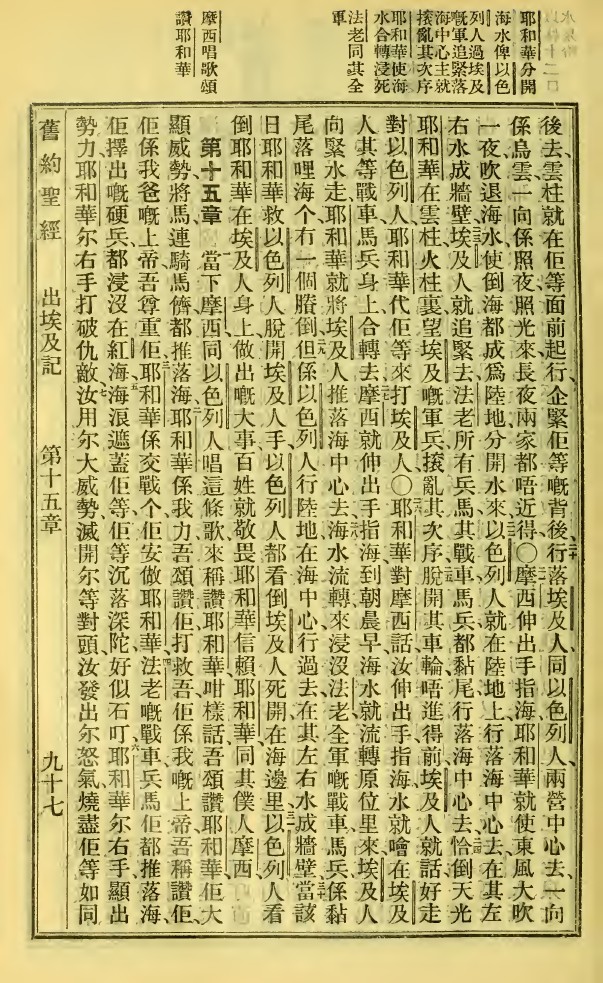 耶和華分開
海水俾以色
列人過埃及
嘅軍追緊落
海中心主就
㨶亂其次序
耶和華使海
水合轉浸死
法老同其全
軍
摩西唱歌頌
讚耶和華
後去雲柱就在佢等面前起行企緊佢等嘅背後行落埃及人同以色列人兩營中心去一向
係烏雲一向係照夜照光來長夜兩家都唔近得〇摩西伸出手指海耶和華就使東風大吹
一夜吹退海水使倒海都成爲陸地分開水來以色列人就在陸地上行落海中心去在其左
右水成牆壁埃及人就追緊去法老所有兵馬其戰車馬兵都黏尾行落海中心去恰倒天光
耶和華在雲柱火柱裏望埃及嘅軍兵㨶亂其次序脫開其車輪唔進得前埃及人就話好走
對以色列人耶和華代佢等來打埃及人〇耶和華對摩西話汝伸出手指海水就噲在埃及
人其等戰車馬兵身上合轉去摩西就伸出手指海到朝晨早海水就流轉原位里來埃及人
向緊水走耶和華就將埃及人推落海中心去海水流轉來浸沒法老全軍嘅戰車馬兵係黏
尾落哩海个冇一個賸倒但係以色列人行陸地在海中心行過去在其左右水成牆壁當該
日耶和華救以色列人脫開埃及人手以色列人都看倒埃及人死開在海邊里以色列人看
倒耶和華在埃及人身上做出嘅大事百姓就敬畏耶和華信賴耶和華同其僕人摩西
第十五章 當下摩西同以色列人唱這條歌來稱讚耶和華咁樣話吾頌讚耶和華佢大
顯威勢將馬連騎馬儕都推落海耶和華係我力吾頌讚佢打救吾佢係我嘅上帝吾稱讚佢
佢係我爸嘅上帝吾尊重佢耶和華係交戰个佢安做耶和華法老嘅戰車兵馬佢都推落海
佢擇出嘅硬兵都浸沒在紅海海浪遮蓋佢等佢等沉落深陀好似石叮耶和華尔右手顯出
勢力耶和華尔右手打破仇敵汝用尔大威勢滅開尔等對頭汝發出尔怒氣燒盡佢等如同
舊約聖經 出埃及記 第十五章 九十七